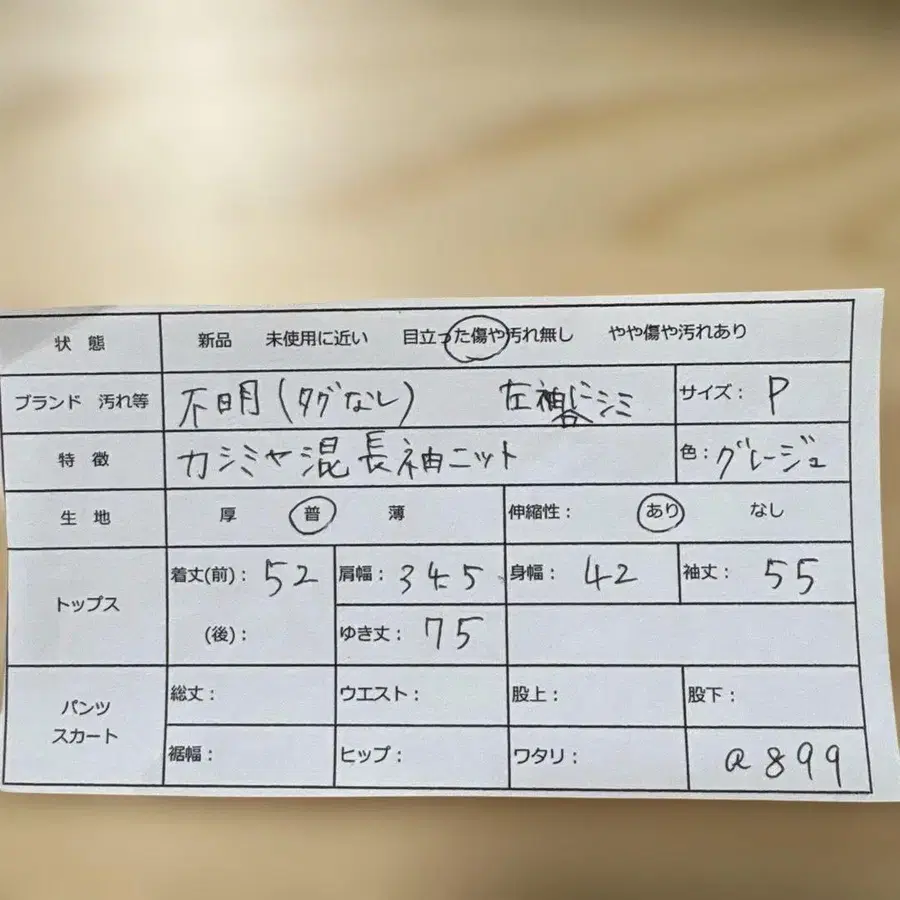 状態 新品 未使用に近い 目立った傷や汚れ無し やや傷や汚れあり
ブランド 汚れ等 不明(タグなし) 左袖に シミ サイズ: P
特徴 カシミヤ混 長袖ニット 色: グレージュ
生地 厚 普 薄 伸縮性: あり なし
トップス 着丈(前): 52 肩幅: 34.5 身幅: 42 袖丈: 55
(後): ゆき丈: 75
パンツ スカート 総丈: ウエスト: 股上: 股下:
裾幅: ヒップ: ワタリ: a899